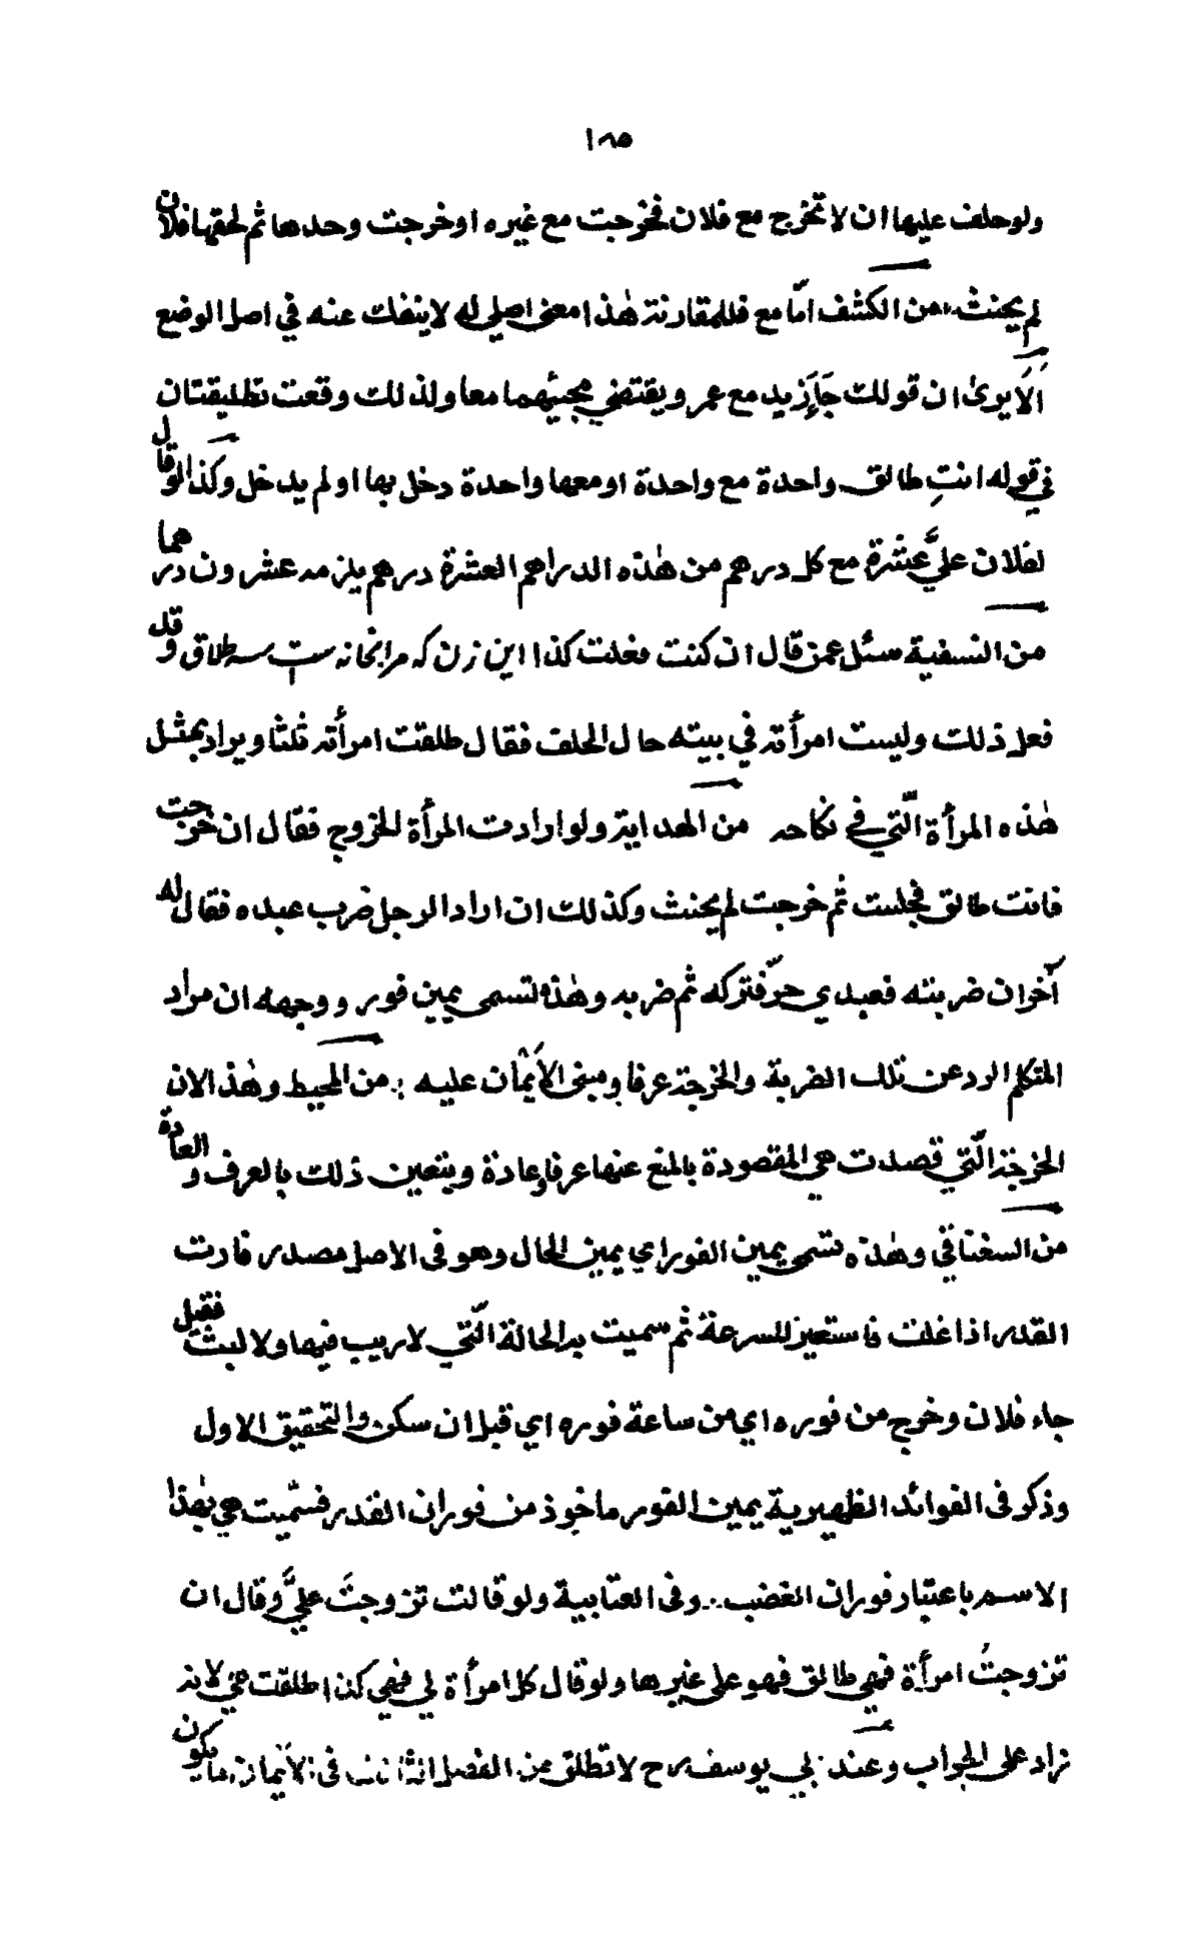 ١٨٥
ولو حلف عليها ان لا تخرج مع فلان فخرجت مع غيره او خرجت وحدها ثم لحقها فلان
لم يحنث من الكشف امّا مع فللمقارنة هٰذا معنى اصلي له لا ينفك عنه في اصل الوضع
اَلَا يرىٰ ان قولك جَاءَ زيد مع عمرو يقتضي مجيئهما معا ولذلك وقعت تطليقتان
في قوله انتِ طالق واحدة مع واحدة او معها واحدة دخل بها او لم يدخل وكذا لو قال
لفلان عليَّ عشرة مع كل درهم من هٰذه الدراهم العشرة درهم يلزمه عشرون درهما
من النسفية سئل عمن قال ان كنت فعلت كذا اين زن كه مرا بخانه ست سه طلاق وقد
فعل ذلك وليست امرأته في بيته حال الحلف فقال طلقت امرأته ثلثا ويراد بمثل
هٰذه المرأة الّتي في نكاحه من الهداية ولو ارادت المرأة الخروج فقال ان خرجت
فانت طالق فجلست ثم خرجت لم يحنث وكذلك ان اراد الرجل ضرب عبده فقال له
آخر ان ضربته فعبدي حرّ فتركه ثم ضربه وهٰذه تسمى يمين فور ووجهه ان مراد
المتكلم الرد عن تلك الضربة والخرجة عرفا ومبنى الأيمان عليه من المحيط وهٰذا لان
الخرجة الّتي قصدت هي المقصودة بالمنع عنها عرفا وعادة ويتعين ذلك بالعرف والعادة
من السغناقي وهٰذه تسمى يمين الفور اي يمين الحال وهو في الاصل مصدر فارت
القدر اذا غلت فاستعير للسرعة ثم سميت به الحالة الّتي لا ريب فيها ولا لبث فقيل
جاء فلان وخرج من فوره اي من ساعة فوره اي قبل ان سكن والتحقيق الاول
وذكر في الفوائد الظهيرية يمين الفور ماخوذ من فوران القدر فسمّيت هي بهٰذا
الاسم باعتبار فوران الغضب وفي العتابية ولو قالت تزوجتَ عليَّ وقال ان
تزوجتُ امرأة فهي طالق فهو على غيرها ولو قال كل امرأة لي فهي كذا طلقت هي لانه
زاد على الجواب وعند ابي يوسف رح لا تطلق من الفصل الثاني في الأيمان ما يكون